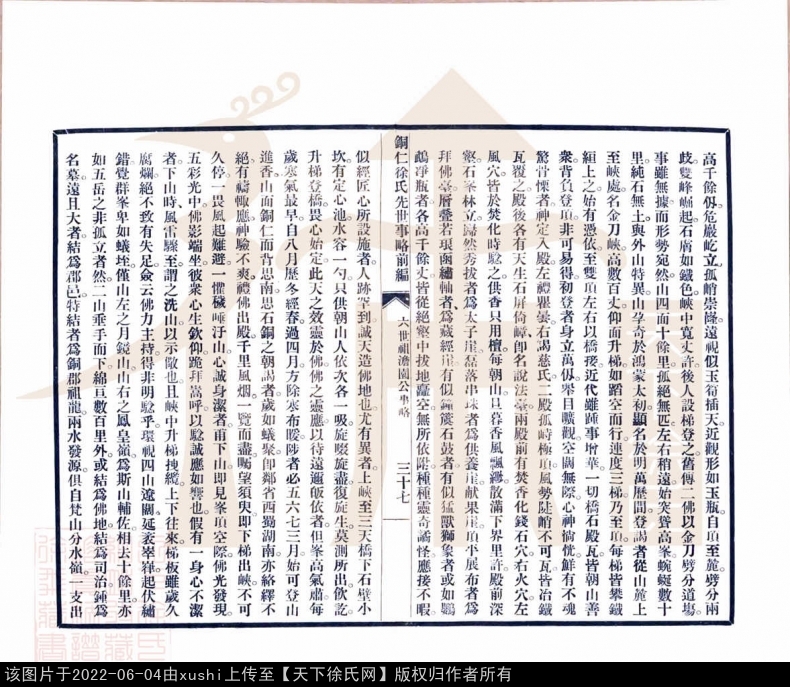 高千餘仭危巖屹立孤峭崇隆遠視似玉筍插天近觀形如玉瓶自頂至麓劈分兩
歧雙峰崛起石膚如鐵色峽中寬丈許後人設梯登之舊傳二佛以金刀劈分道場
事雖無據而形勢宛然山四面十餘里孤絕無匹左右稍遠始突聳高峯蜿蜒數十
里純石無土與外山特異山孕奇於鴻蒙太初顯名於明萬歷間登謁者從山麓上
至峽處名金刀峽高數百丈仰而升梯如蹈空而行連度三梯乃至頂每梯皆攀鐵
絙上之始有憑依至雙頂左右以橋接近代雖踵事增華一切橋石殿瓦皆朝山善
衆背負登頂非可易得初登者身立萬仭舉目曠觀空闊無際心神惝恍鮮有不魂
驚骨慄者神定入殿左禮瞿曇右謁慈氏二殿孤峙極頂風勢陡峭不可瓦皆冶鐵
瓦覆之殿後各有天生石屏倚嶂卽名說法臺兩殿前有焚香化錢石穴右火穴左
風穴皆於焚化時驗之供香只用檀每朝山旦暮香風飄緲散滿下界里許殿前深
壑石峯林立歸然秀拔者爲太子崖磊落出串珠者爲供養崖獻果崖頂平展布者爲
拜佛臺層疊若琅函繡軸者爲藏經崖有似鐘簴石鼓者有似猛獸獅象者或如鸚
鵡凈瓶者各高千餘丈皆從絕壑中拔地矗空無所依附種種靈奇譎怪應接不暇
銅仁徐氏先世事略前編
六世祖澹園公事略
三十七
似經匠心所設施者人跡罕到誠天造佛地也尤有異者上峽至三天橋下石壁小
坎有定心池水容一勺只供朝山人依次各一吸旋啜旋盡復旋生莫測所出飲訖
升梯登橋畏心始定此天之效靈於佛佛之靈應以待遠邇皈依者但峯高氣肅每
歲寒氣最早自八月歷冬經春過四月方除寒布暖陟者必五六七三月始可登山
進香山面銅仁而背思南思石銅之朝謁者歲如蟻衆卽鄰省西蜀湖南亦絡繹不
絕有禱輙應神驗不爽禮佛出殿千里風烟一覽而盡矚望須臾卽下梯出峽不可
久停一畏風起難避一懼穢唾汙山心誠身潔者甫下山卽見峯頂空際佛光發現
五彩光中佛影端坐彼衆心生欽仰跪拜嵩呼以驗誠應如響也假有一身心不潔
者下山時風雷驟至謂之洗山以示儆也且峽中升梯拽纜上下往來梯板雖歲久
腐爛絕不致有失足僉云佛力主持得非明驗乎環視四山遼闊延袤崒嵂起伏繡
錯覺羣峯卑如蟻垤僅山左之月鏡山山右之鳳皇嶺爲斯山輔佐相去十餘里亦
如五岳之非孤立者然二山垂乎而下綿亘數百里外或結爲佛地結爲司治鍾爲
名墓遠且大者結爲郡邑特結者爲銅郡祖龍兩水發源俱自梵山分水嶺一支出
该图片于2022-06-04由xushi上传至【天下徐氏网】版权归作者所有